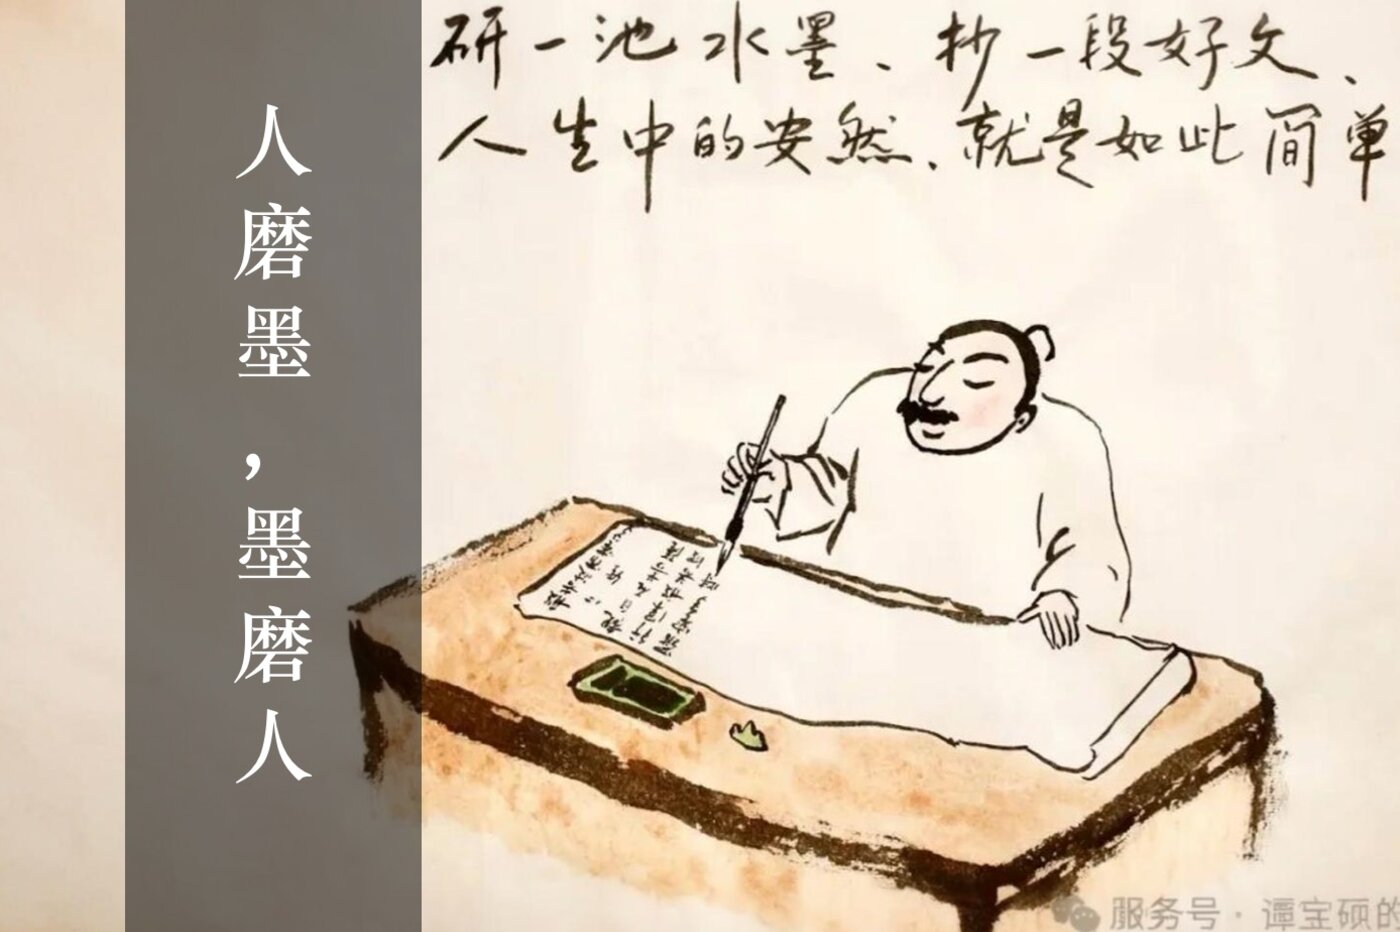 研一池水墨、抄一段好文、
人生中的安然、就是如此简单
人磨墨，墨磨人
服务号·谭宝硕的